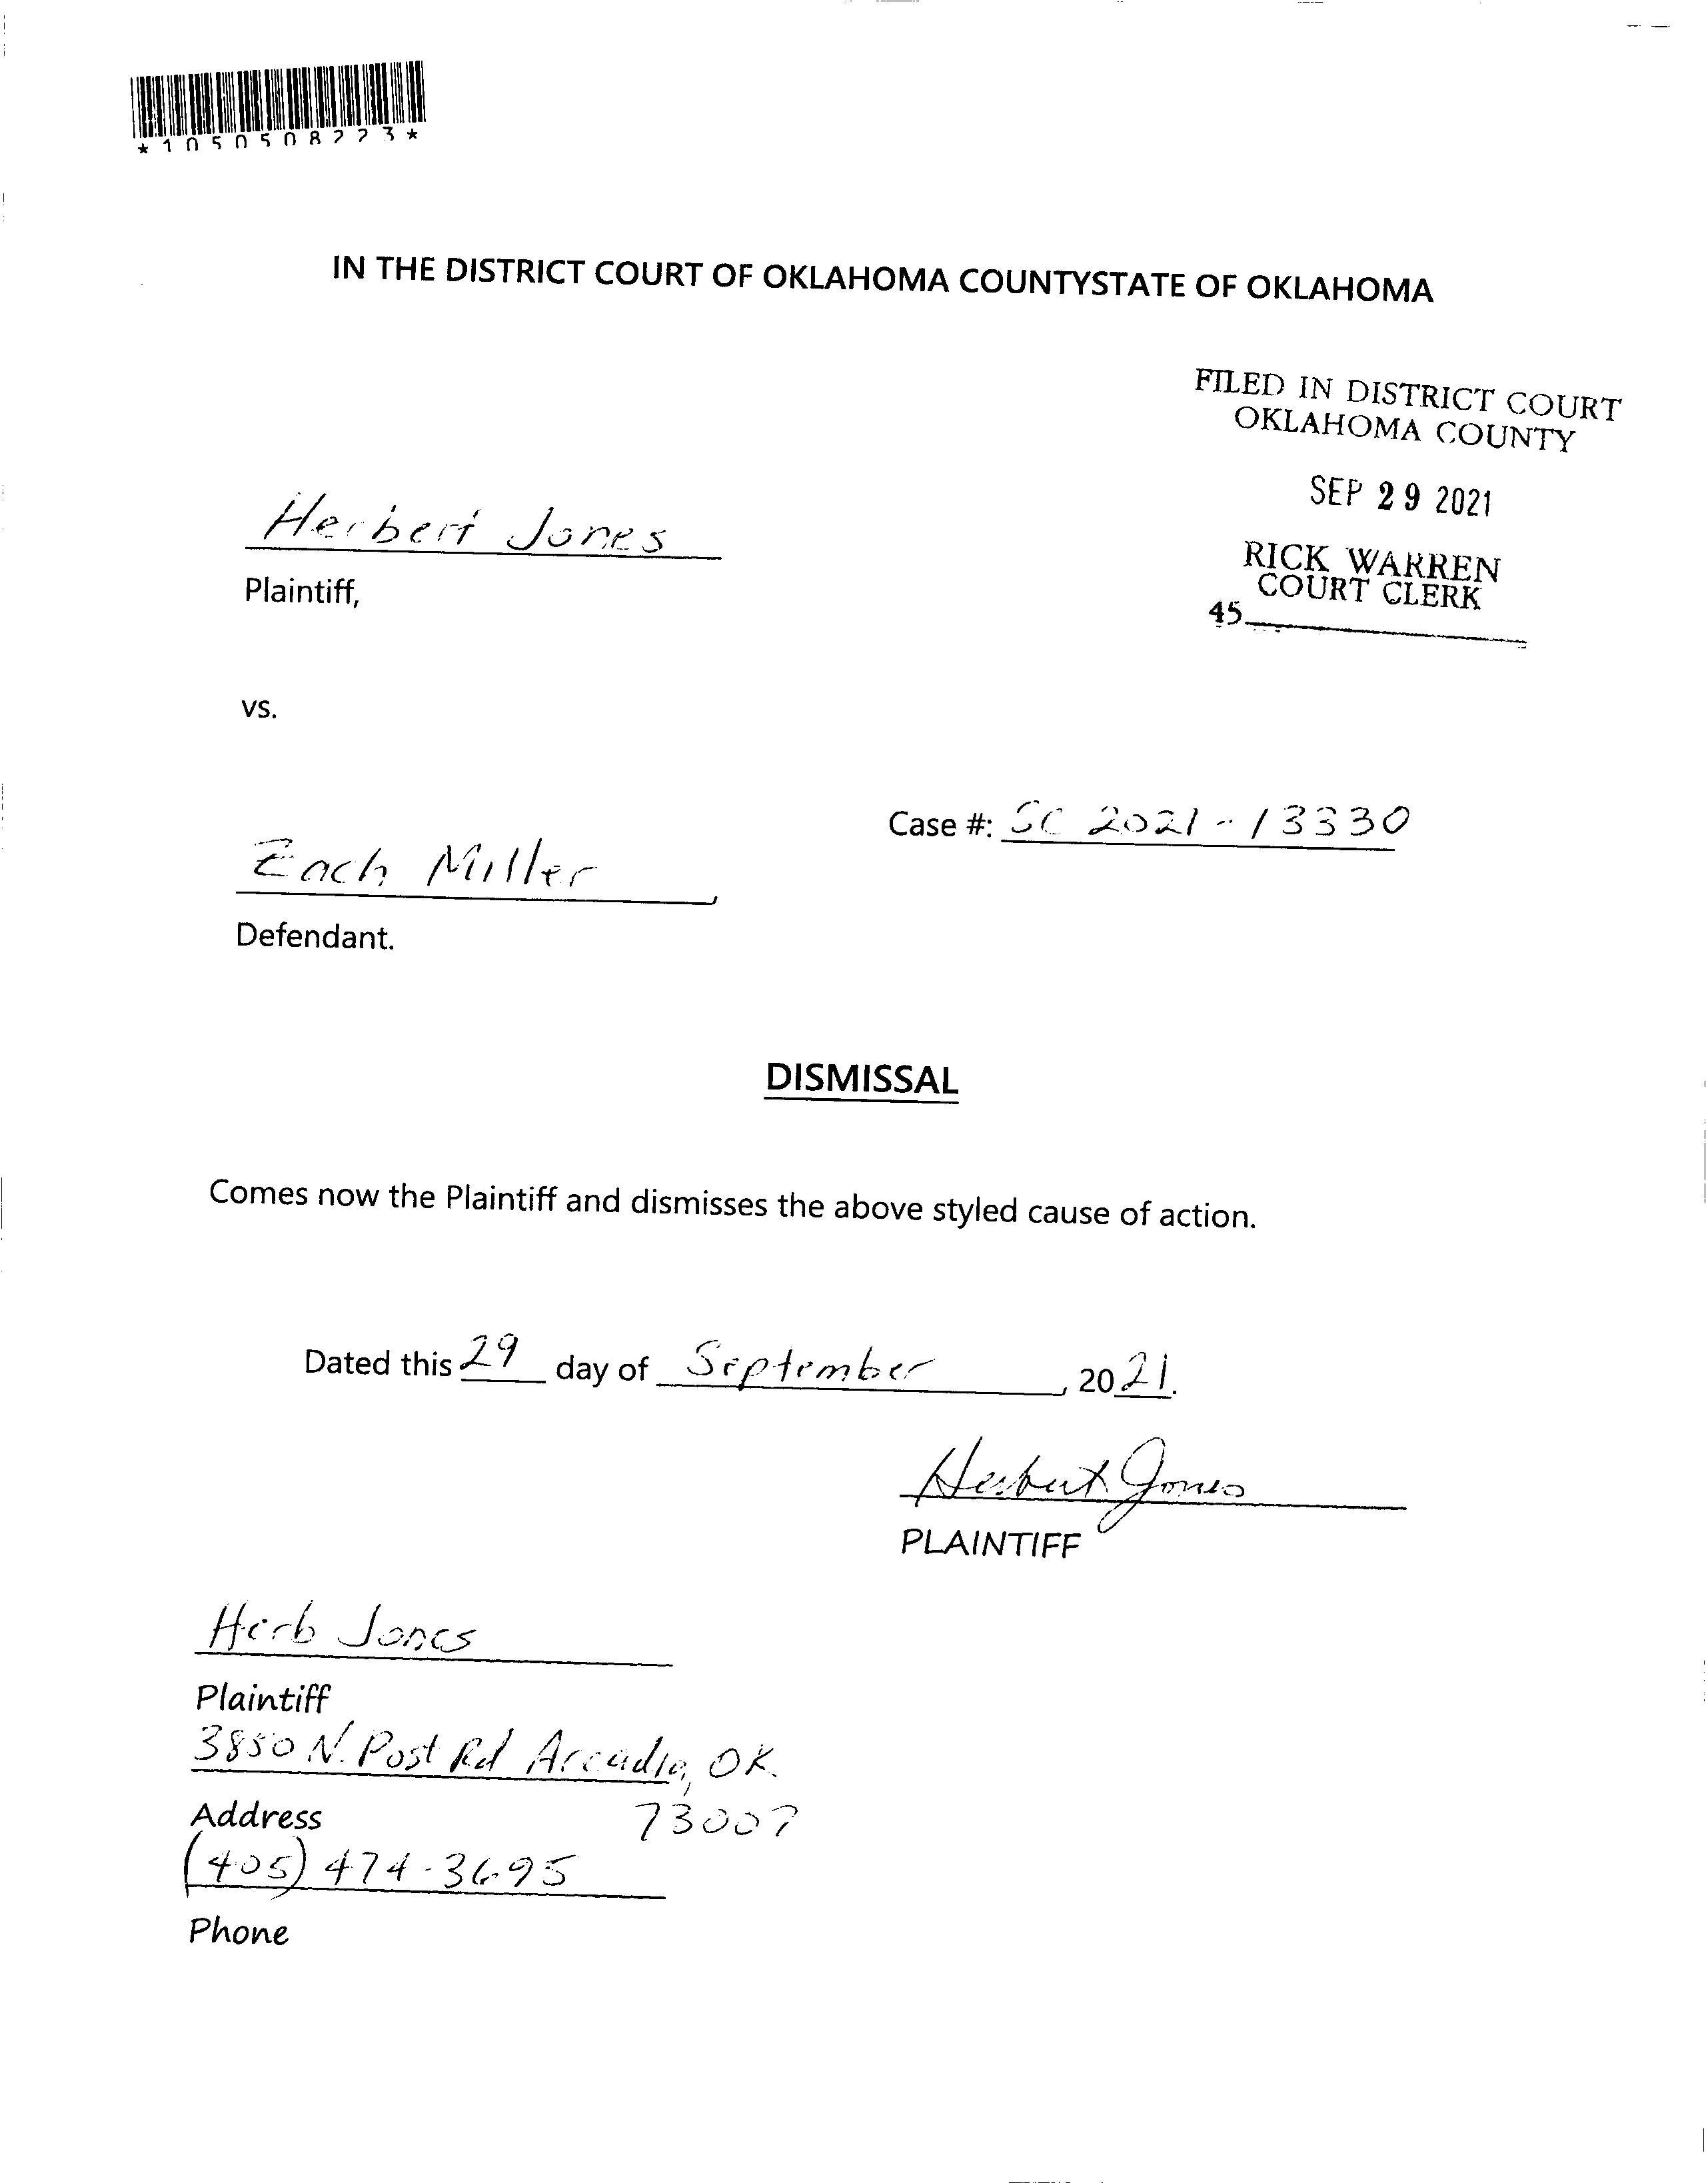 *1050508223*
IN THE DISTRICT COURT OF OKLAHOMA COUNTYSTATE OF OKLAHOMA
FILED IN DISTRICT COURT
OKLAHOMA COUNTY
SEP 29 2021
RICK WARREN
COURT CLERK
45
Herbert Jones
Plaintiff,
vs.
Case #: SC 2021-13330
Zach Miller,
Defendant.
DISMISSAL
Comes now the Plaintiff and dismisses the above styled cause of action.
Dated this 29 day of September, 2021.
Herbert Jones
PLAINTIFF
Herb Jones
Plaintiff
3850 N. Post Rd Arcadia, OK.
Address 73007
(405) 474-3695
Phone